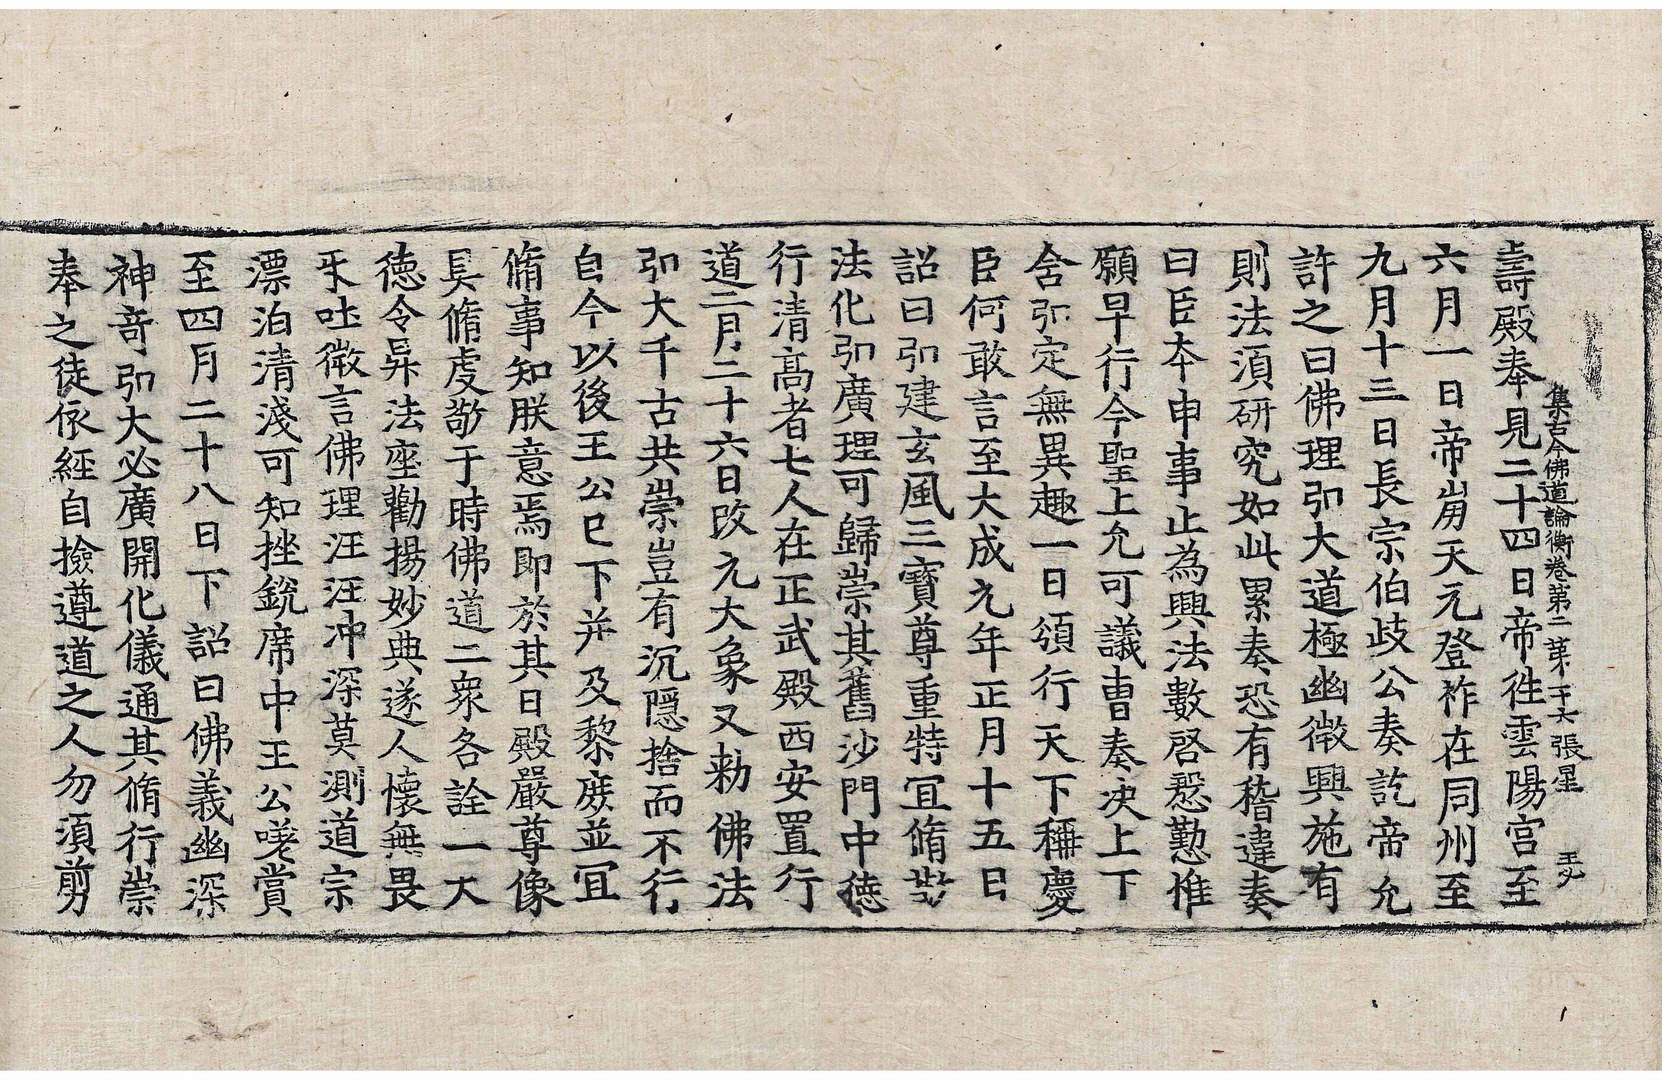 集古今佛道論衡卷第二 第二十六張 星
壽殿奉見二十四日帝往雲陽宮至
六月一日帝崩天元登祚在同州至
九月十三日長宗伯歧公奏訖帝允
許之曰佛理弘大道極幽微興施有
則法須研究如此累奏恐有稽違奏
曰臣本申事止為興法數啓慇懃惟
願早行今聖上允可議曹奏決上下
含弘定無異趣一日頒行天下稱慶
臣何敢言至大成元年正月十五日
詔曰弘建玄風三寶尊重特宜脩敬
法化弘廣理可歸崇其舊沙門中德
行清高者七人在正武殿西安置行
道二月二十六日改元大象又勑佛法
弘大千古共崇豈有沉隱捨而不行
自今以後王公已下并及黎庶並宜
脩事知朕意焉即於其日殿嚴尊像
具脩虔敬于時佛道二衆各詮一大
德令昇法座勸揚妙典遂人懷無畏
牙吐微言佛理汪汪冲深莫測道宗
漂泊清淺可知挫銳席中王公嗟賞
至四月二十八日下詔曰佛義幽深
神奇弘大必廣開化儀通其脩行崇
奉之徒依經自撿遵道之人勿須剪